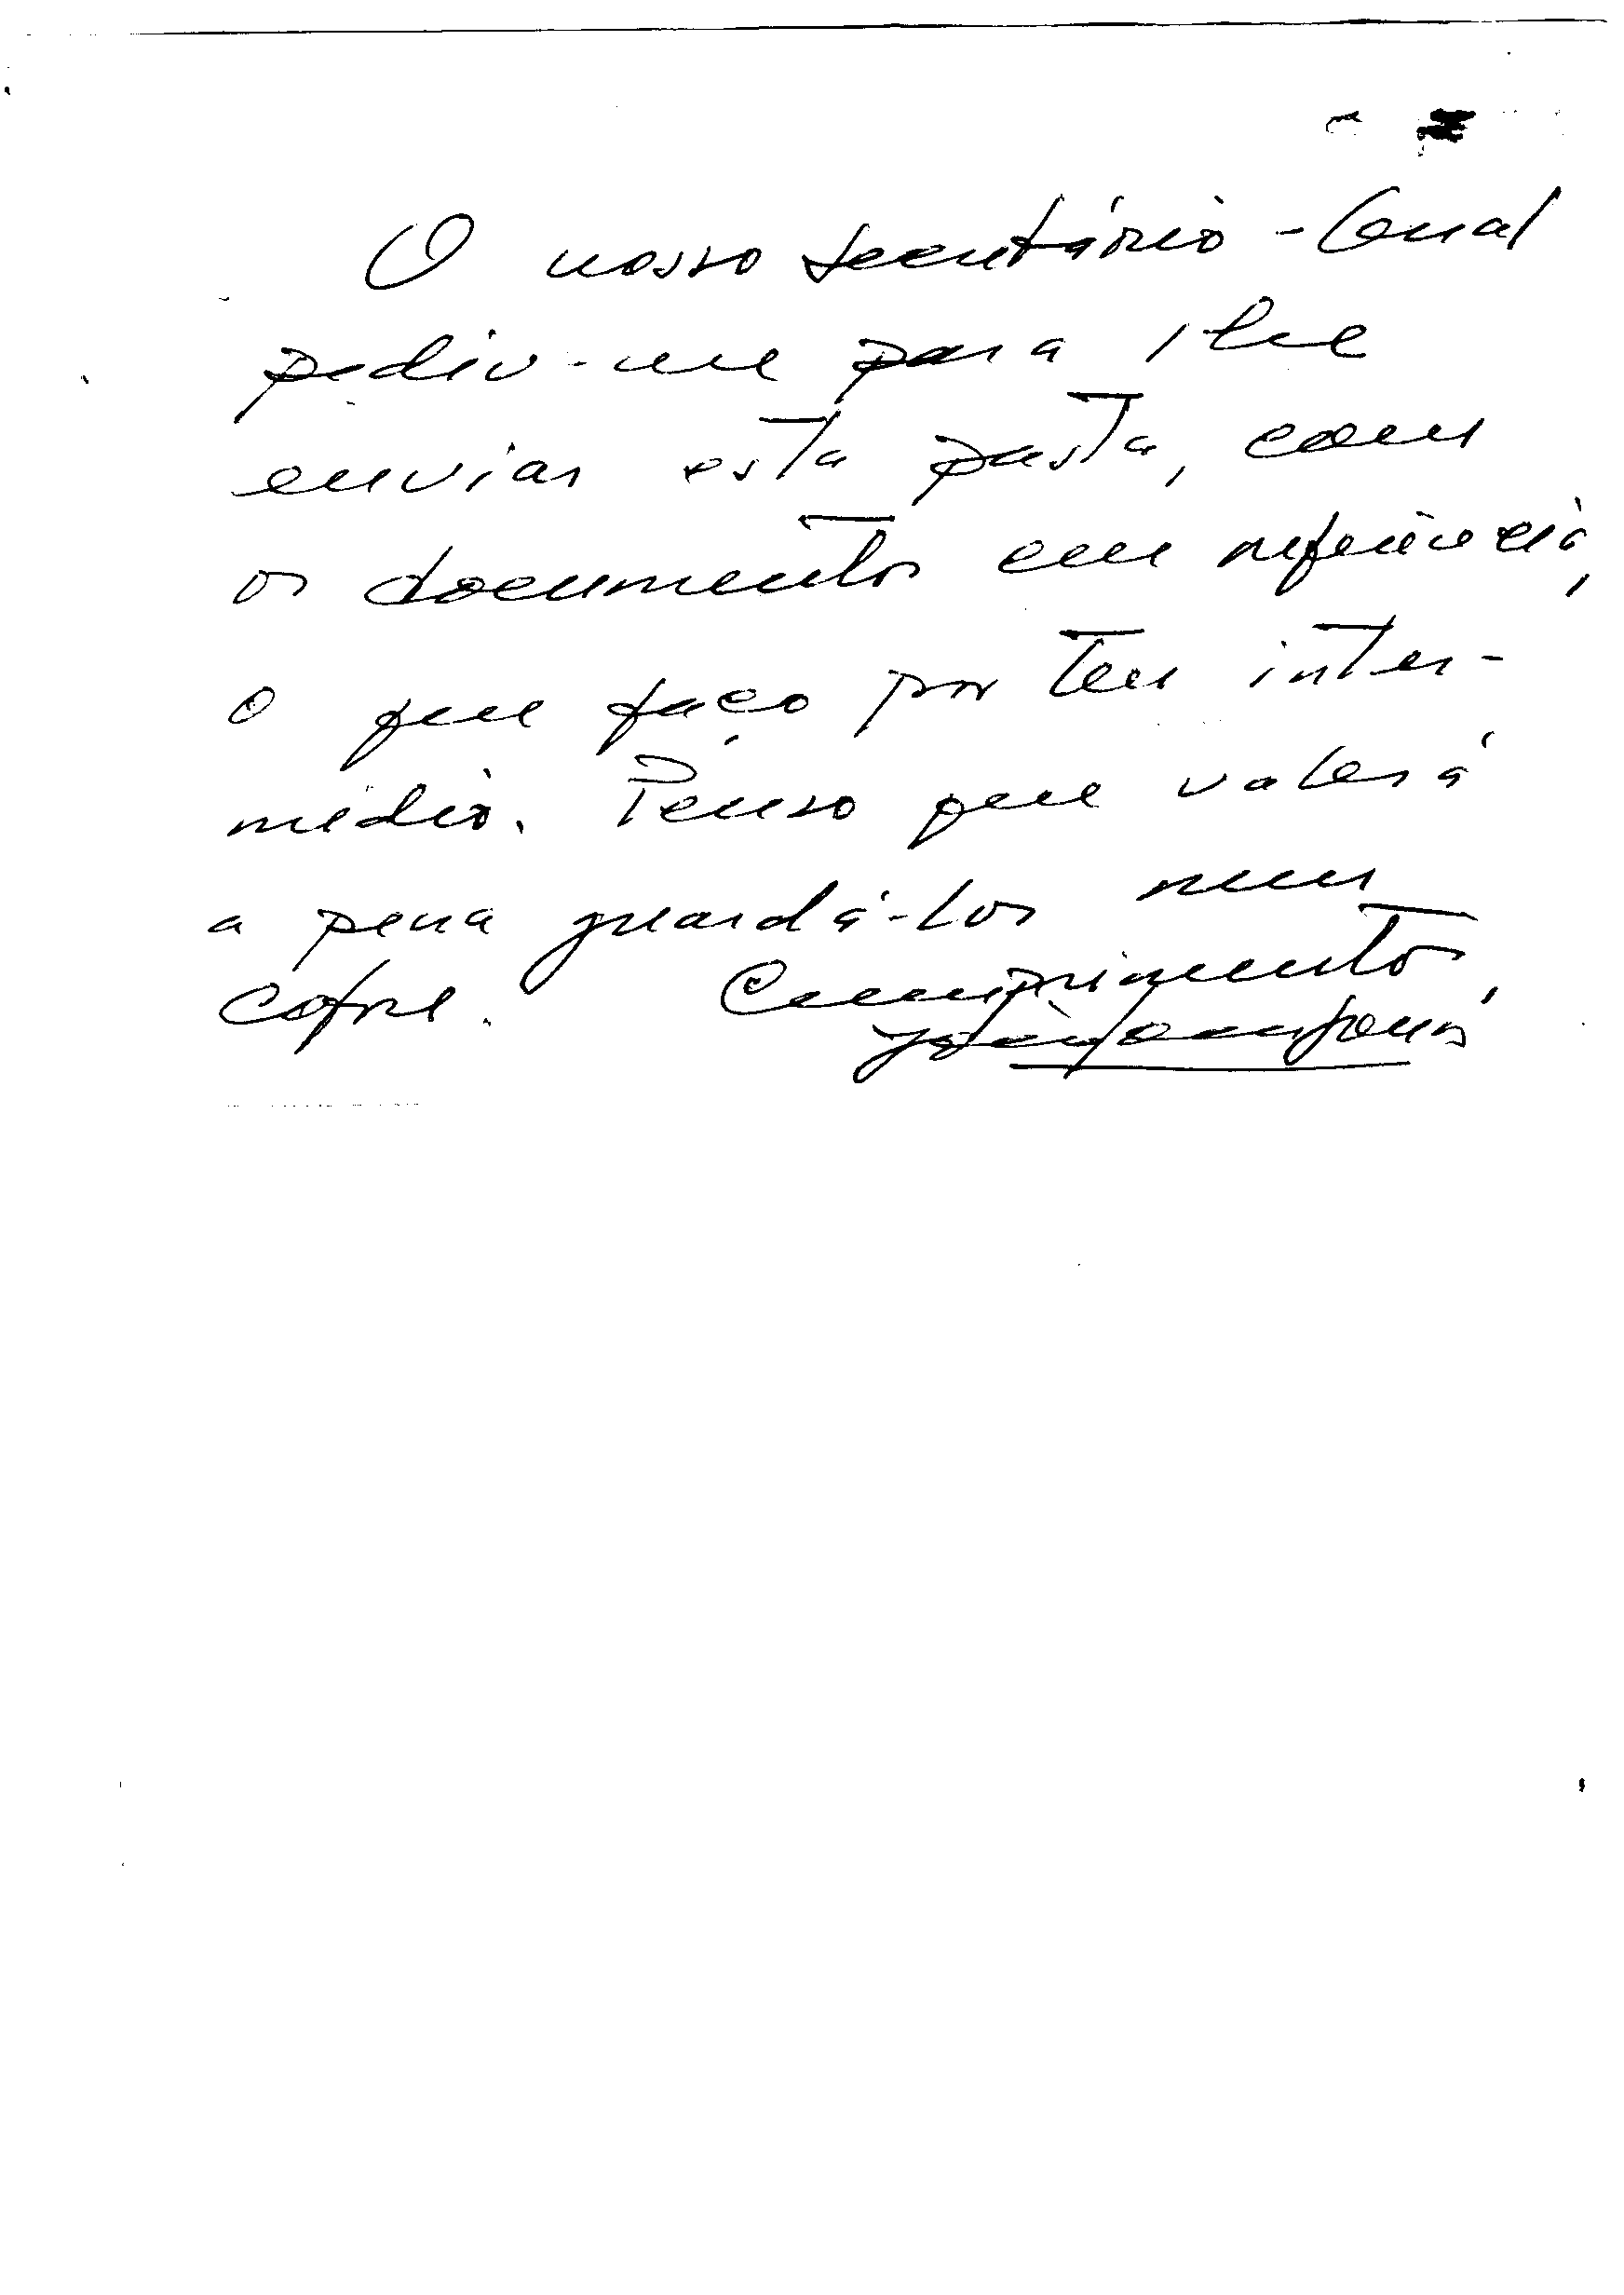 O nosso Secretário-Geral
pediu-me para lhe
enviar esta pasta, com
os documentos em referência,
o que faço por teu inter-
médio. Penso que valerá
a pena guardá-los num
cofre. Cumprimentos,